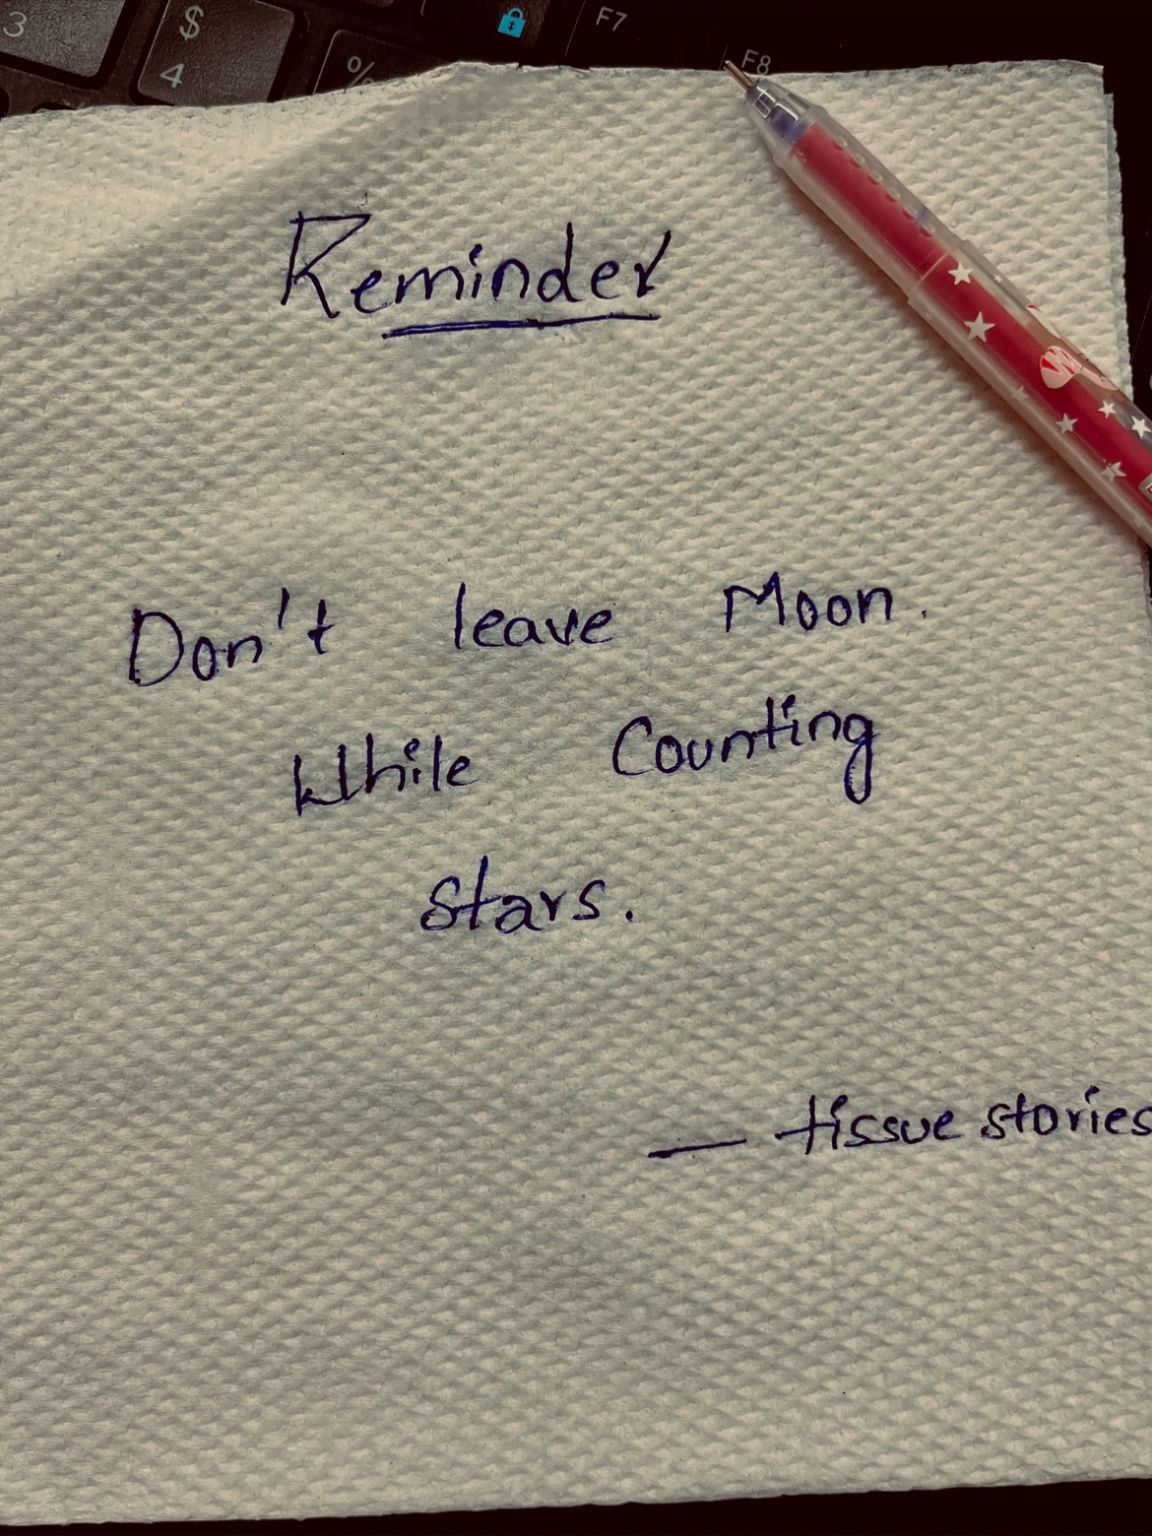 3
$
4
%
F7
F8
Reminder
Don't leave Moon.
While Counting
stars.
— tissue stories